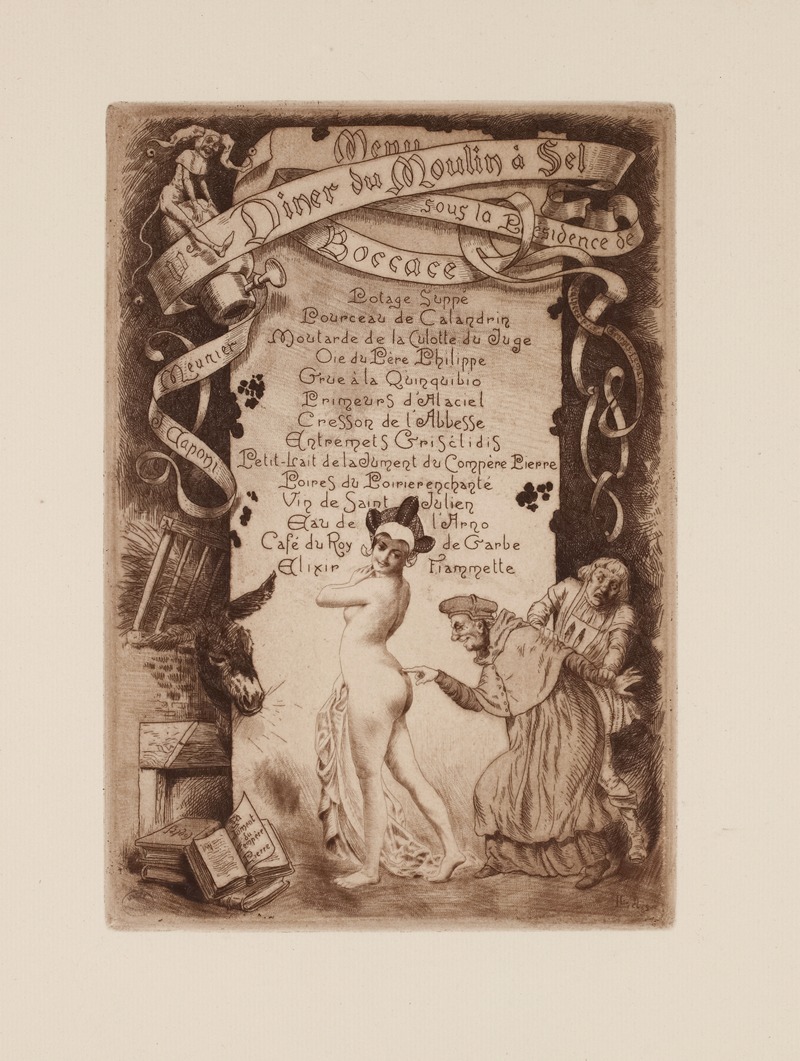 Menu
Diner du Moulin à Sel
sous la Présidence de
Boccace
Potage Suppé
Pourceau de Calandrin
Moutarde de la Culotte du Juge
Oie du Père Philippe
Grue à la Quinquibio
Primeurs d'Alaciel
Cresson de l'Abbesse
Entremets Grisélidis
Petit-lait de la Jument du Compère Pierre
Poires du Poirier enchanté
Vin de Saint Julien
Eau de l'Arno
Café du Roy de Garbe
Elixir Fiammette
Meunier
J Claponi
La
Jument
du
Compère
Pierre